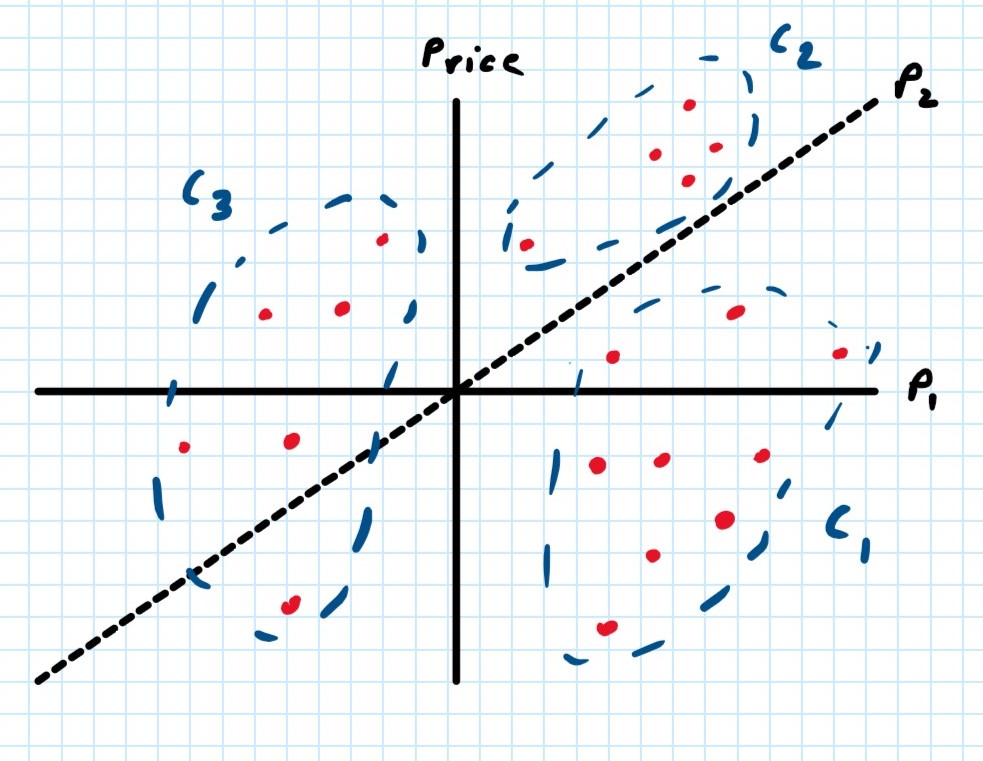 Price
C2
P2
C3
P1
C1